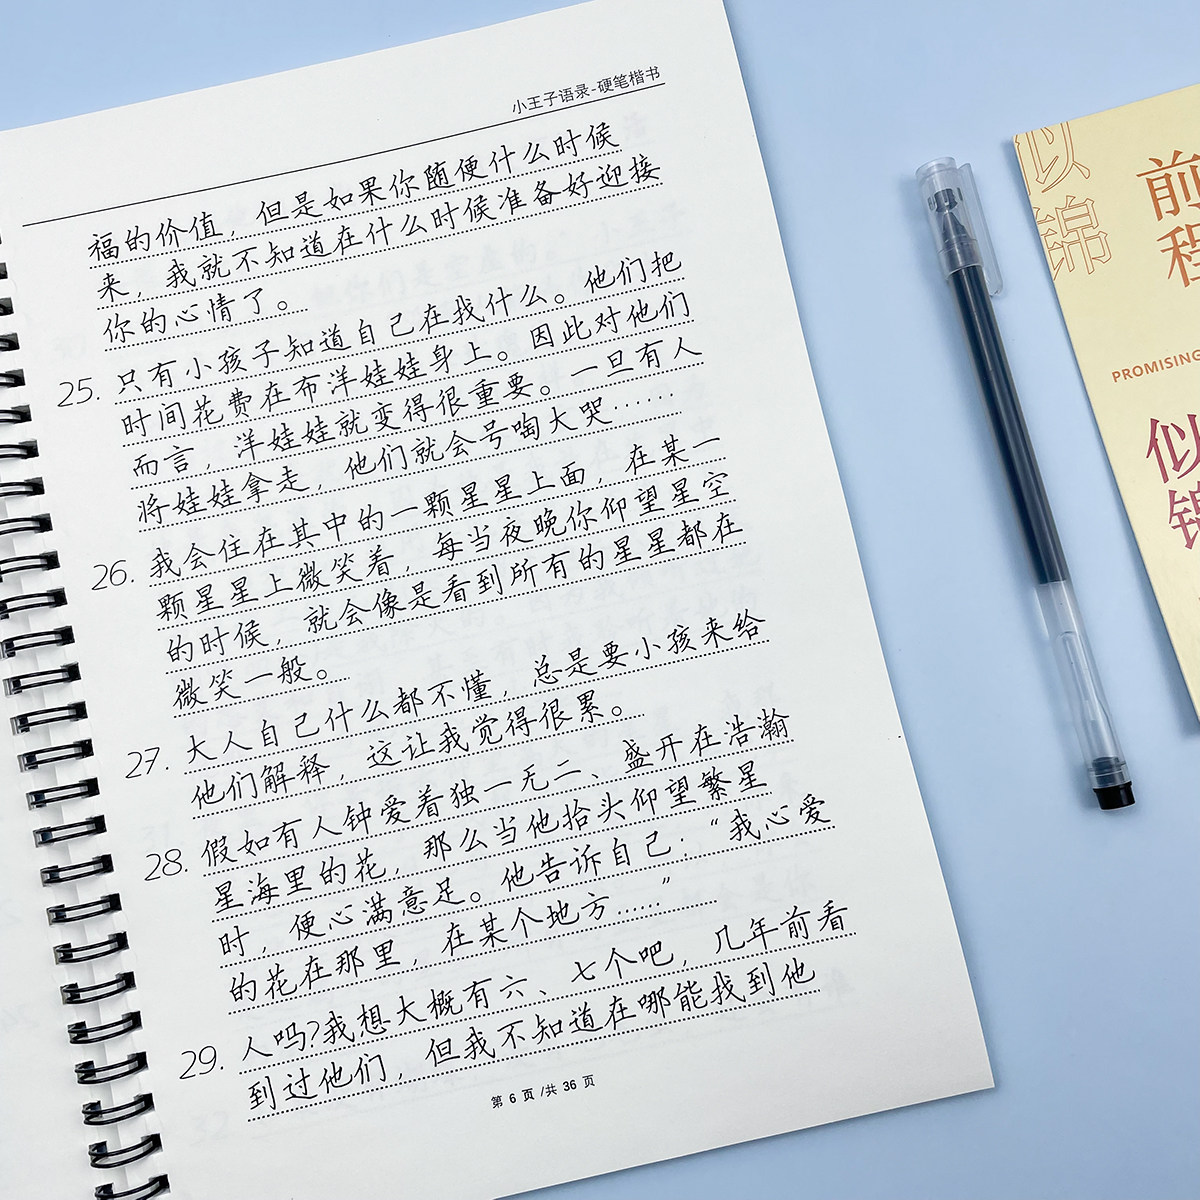 小王子语录-硬笔楷书
福的价值，但是如果你随便什么时候
来，我就不知道在什么时候准备好迎接
你的心情了。
25. 只有小孩子知道自己在找什么。他们把
时间花费在布洋娃娃身上。因此对他们
而言，洋娃娃就变得很重要。一旦有人
将娃娃拿走，他们就会号啕大哭……
26. 我会住在其中的一颗星星上面，在某一
颗星星上微笑着，每当夜晚你仰望星空
的时候，就会像是看到所有的星星都在
微笑一般。
27. 大人自己什么都不懂，总是要小孩来给
他们解释，这让我觉得很累。
28. 假如有人钟爱着独一无二、盛开在浩瀚
星海里的花，那么当他抬头仰望繁星
时，便心满意足。他告诉自己：“我心爱
的花在那里，在某个地方……”
29. 人吗?我想大概有六、七个吧，几年前看
到过他们，但我不知道在哪能找到他
第 6 页 /共 36 页
似
锦
前
程
PROMISING
似
锦